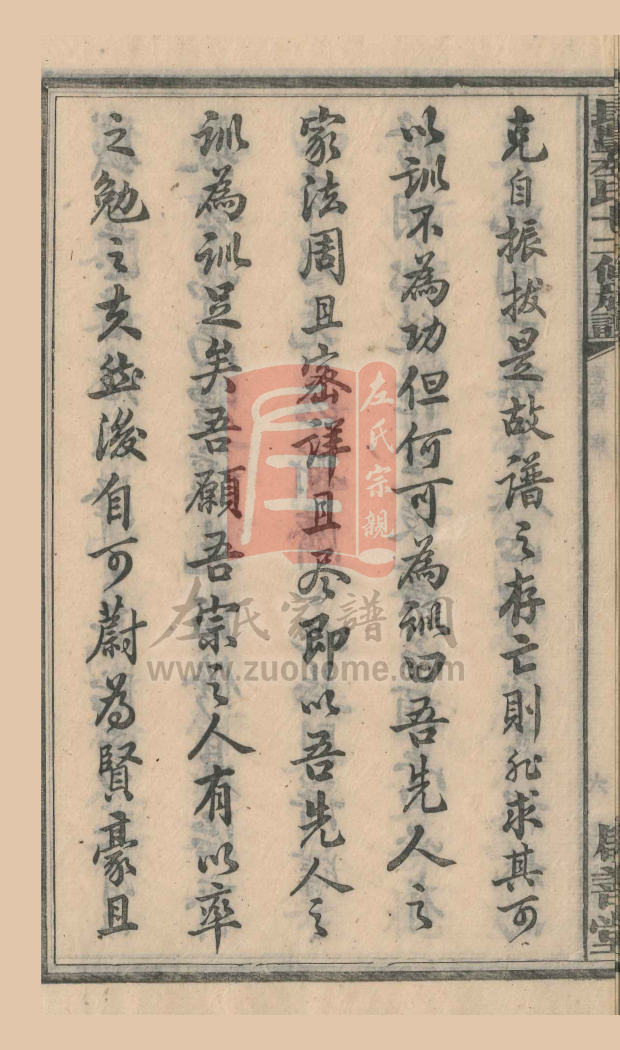 克自振拔是故譜之存亡則非求其可
以訓不為功但何可為訓曰吾先人之
家法周且密詳且尽即以吾先人之
訓為訓足矣吾願吾宗之人有以率
之勉之夫然後自可蔚為賢豪且
左氏宗親
左氏家譜网
www.zuohome.com